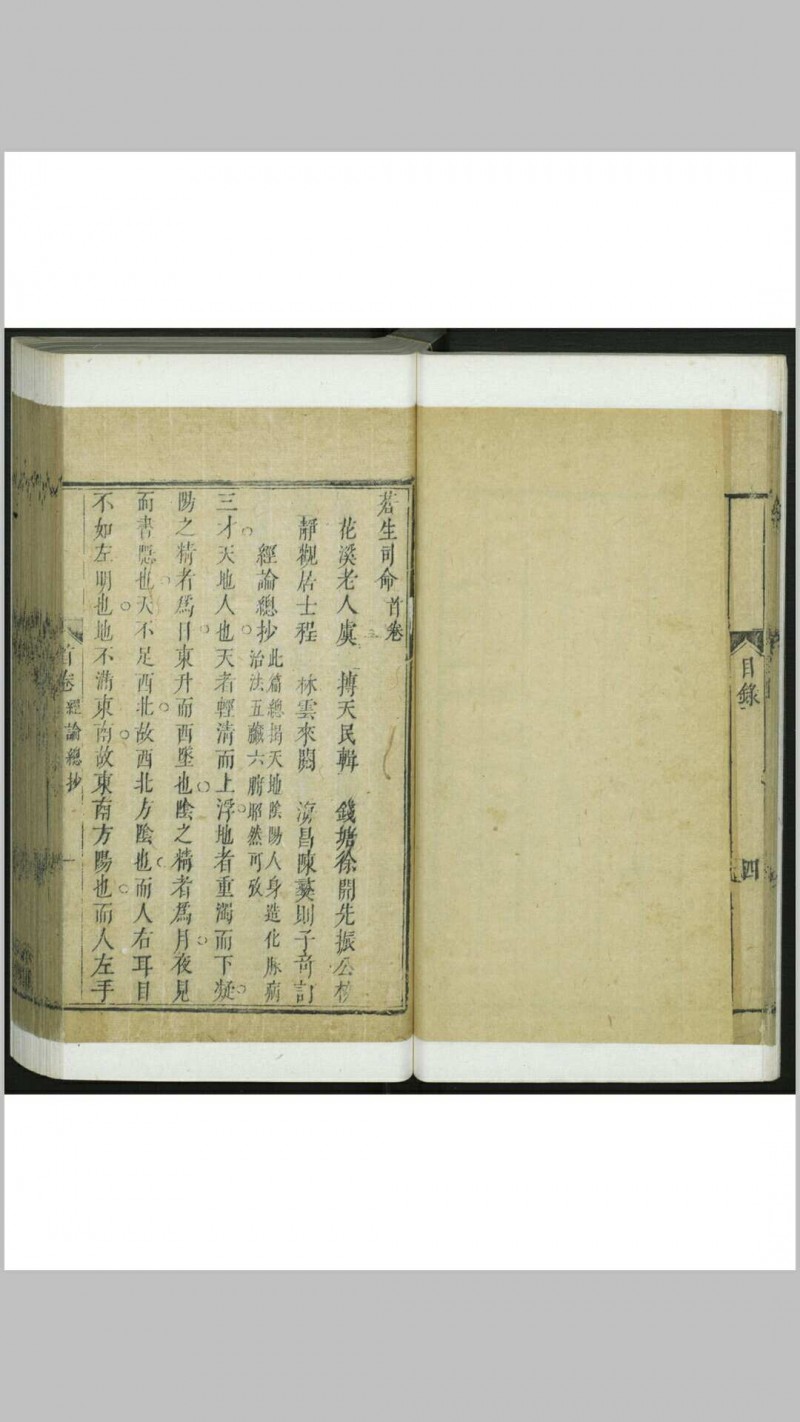 目錄
四
蒼生司命首卷
花溪老人虞 摶天民輯 錢塘徐開先振公校
靜觀居士程 林雲來閱 海昌陳 則子 訂
經論總抄 此篇總揭天地陰陽人身造化脉病
治法五臟六腑耶然可攷
三才天地人也天者輕清而上浮地者重濁而下凝
陽之精者爲日東升而西墜也陰之精者爲月夜見
而書隱也天不足西北故西北方陰也而人右耳目
不如左明也地不滿東南故東南方陽也而人左手
首卷 經論總抄 一